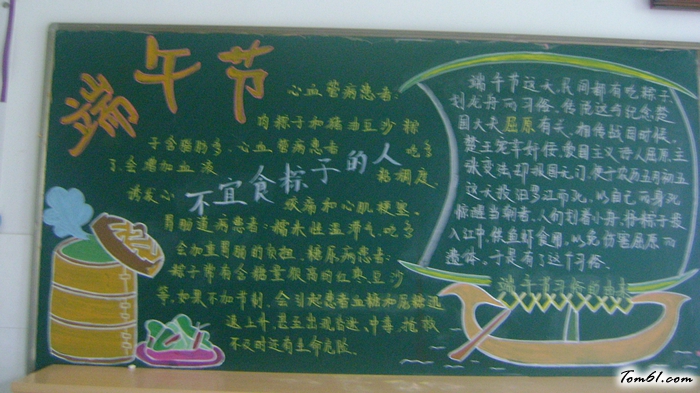 端午节
心血管病患者:
肉粽子和猪油豆沙粽
子含脂肪多,心血管病患者吃多
了,会增加血液粘稠度,
诱发心绞痛和心肌梗塞。
不宜食粽子的人
胃肠道病患者:糯米性温滞气,吃多
会加重胃肠的负担。糖尿病患者:
粽子常有含糖量很高的红枣、豆沙
等,如果不加节制,会引起患者血糖和尿糖迅
速上升,甚至出现昏迷、中毒,抢救
不及时还有生命危险。
端午节这天民间都有吃粽子
划龙舟而习俗。传说这与纪念楚
国大夫屈原有关,相传战国时候,
楚王宠幸奸佞,爱国主义诗人屈原主
张变法却报国无门,便于农历五月初五
这天投汨罗江而死,以自己而身死
人们划着小舟,将粽子投
入江中,供鱼虾食用,以免伤害屈原而
遗体,于是有了这个习俗。
端午节习俗的由来
Tom61.com